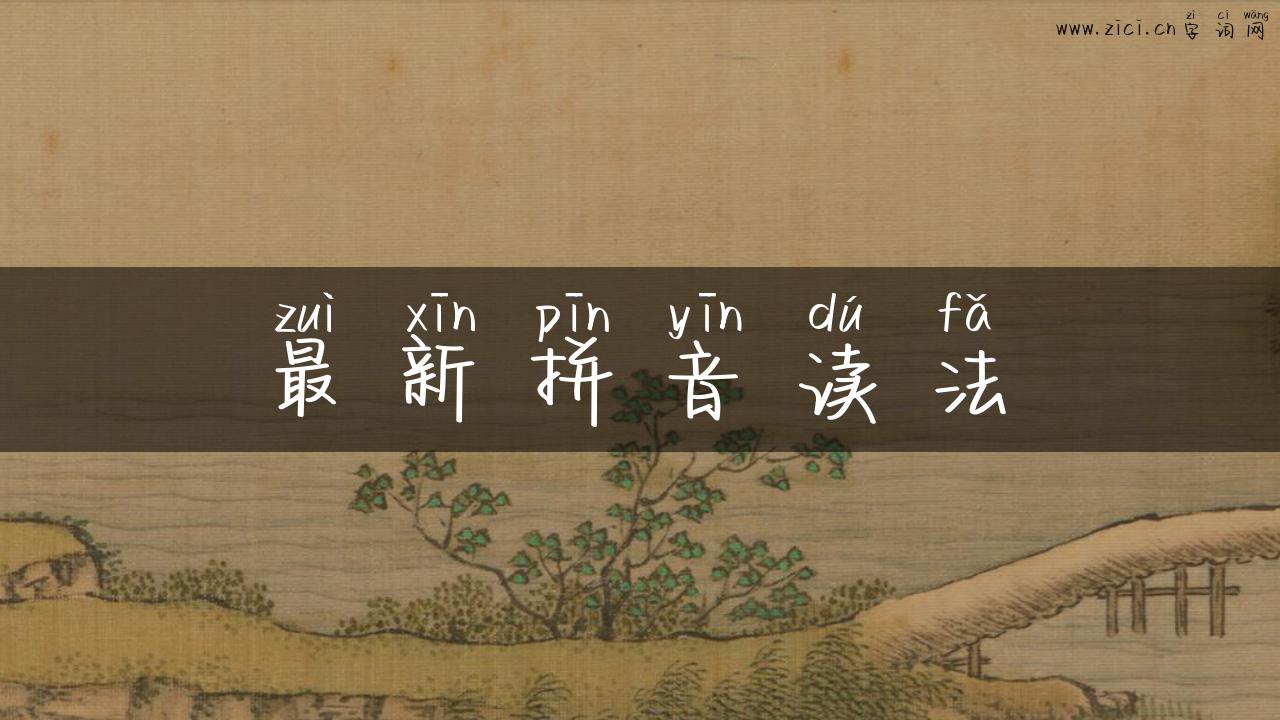 zì cí wǎng
www.zici.cn 字 词 网
zuì xīn pīn yīn dú fǎ
最 新 拼 音 读 法